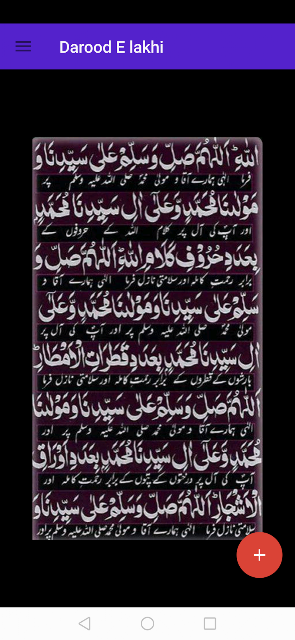 Darood E lakhi
اللهِ اَللّٰهُمَّ صَلِّ وَسَلِّمْ عَلٰى سَيِّدِنَا وَ
فرما الٰہی ہمارے آقا و مولیٰ محمد صلی اللہ علیہ وسلم پر
مَوْلٰنَا مُحَمَّدٍ وَّعَلٰى اٰلِ سَيِّدِنَا مُحَمَّدٍ
اور آپ کی آل پر کلام اللہ کے حروفوں کے
بِعَدَدِ حُرُوْفِ كَلَامِ اللهِ اَللّٰهُمَّ صَلِّ وَ
برابر رحمتِ کاملہ اور سلامتی نازل فرما الٰہی ہمارے آقا و
سَلِّمْ عَلٰى سَيِّدِنَا وَمَوْلٰنَا مُحَمَّدٍ وَّعَلٰى
مولیٰ محمد صلی اللہ علیہ وسلم پر اور آپ کی آل پر
اٰلِ سَيِّدِنَا مُحَمَّدٍ بِعَدَدِ قَطَرَاتِ الْاَمْطَارِ
بارشوں کے قطروں کے برابر رحمتِ کاملہ اور سلامتی نازل فرما
اَللّٰهُمَّ صَلِّ وَسَلِّمْ عَلٰى سَيِّدِنَا وَمَوْلٰنَا
الٰہی ہمارے آقا و مولیٰ محمد صلی اللہ علیہ وسلم پر اور
مُحَمَّدٍ وَّعَلٰى اٰلِ سَيِّدِنَا مُحَمَّدٍ بِعَدَدِ اَوْرَاقِ
آپ کی آل پر درختوں کے پتوں کے برابر رحمتِ کاملہ اور
الْاَشْجَارِ اَللّٰهُمَّ صَلِّ وَسَلِّمْ عَلٰى سَيِّدِنَا وَ
سلامتی نازل فرما الٰہی ہمارے آقا و مولیٰ محمد صلی اللہ علیہ وسلم پر اور